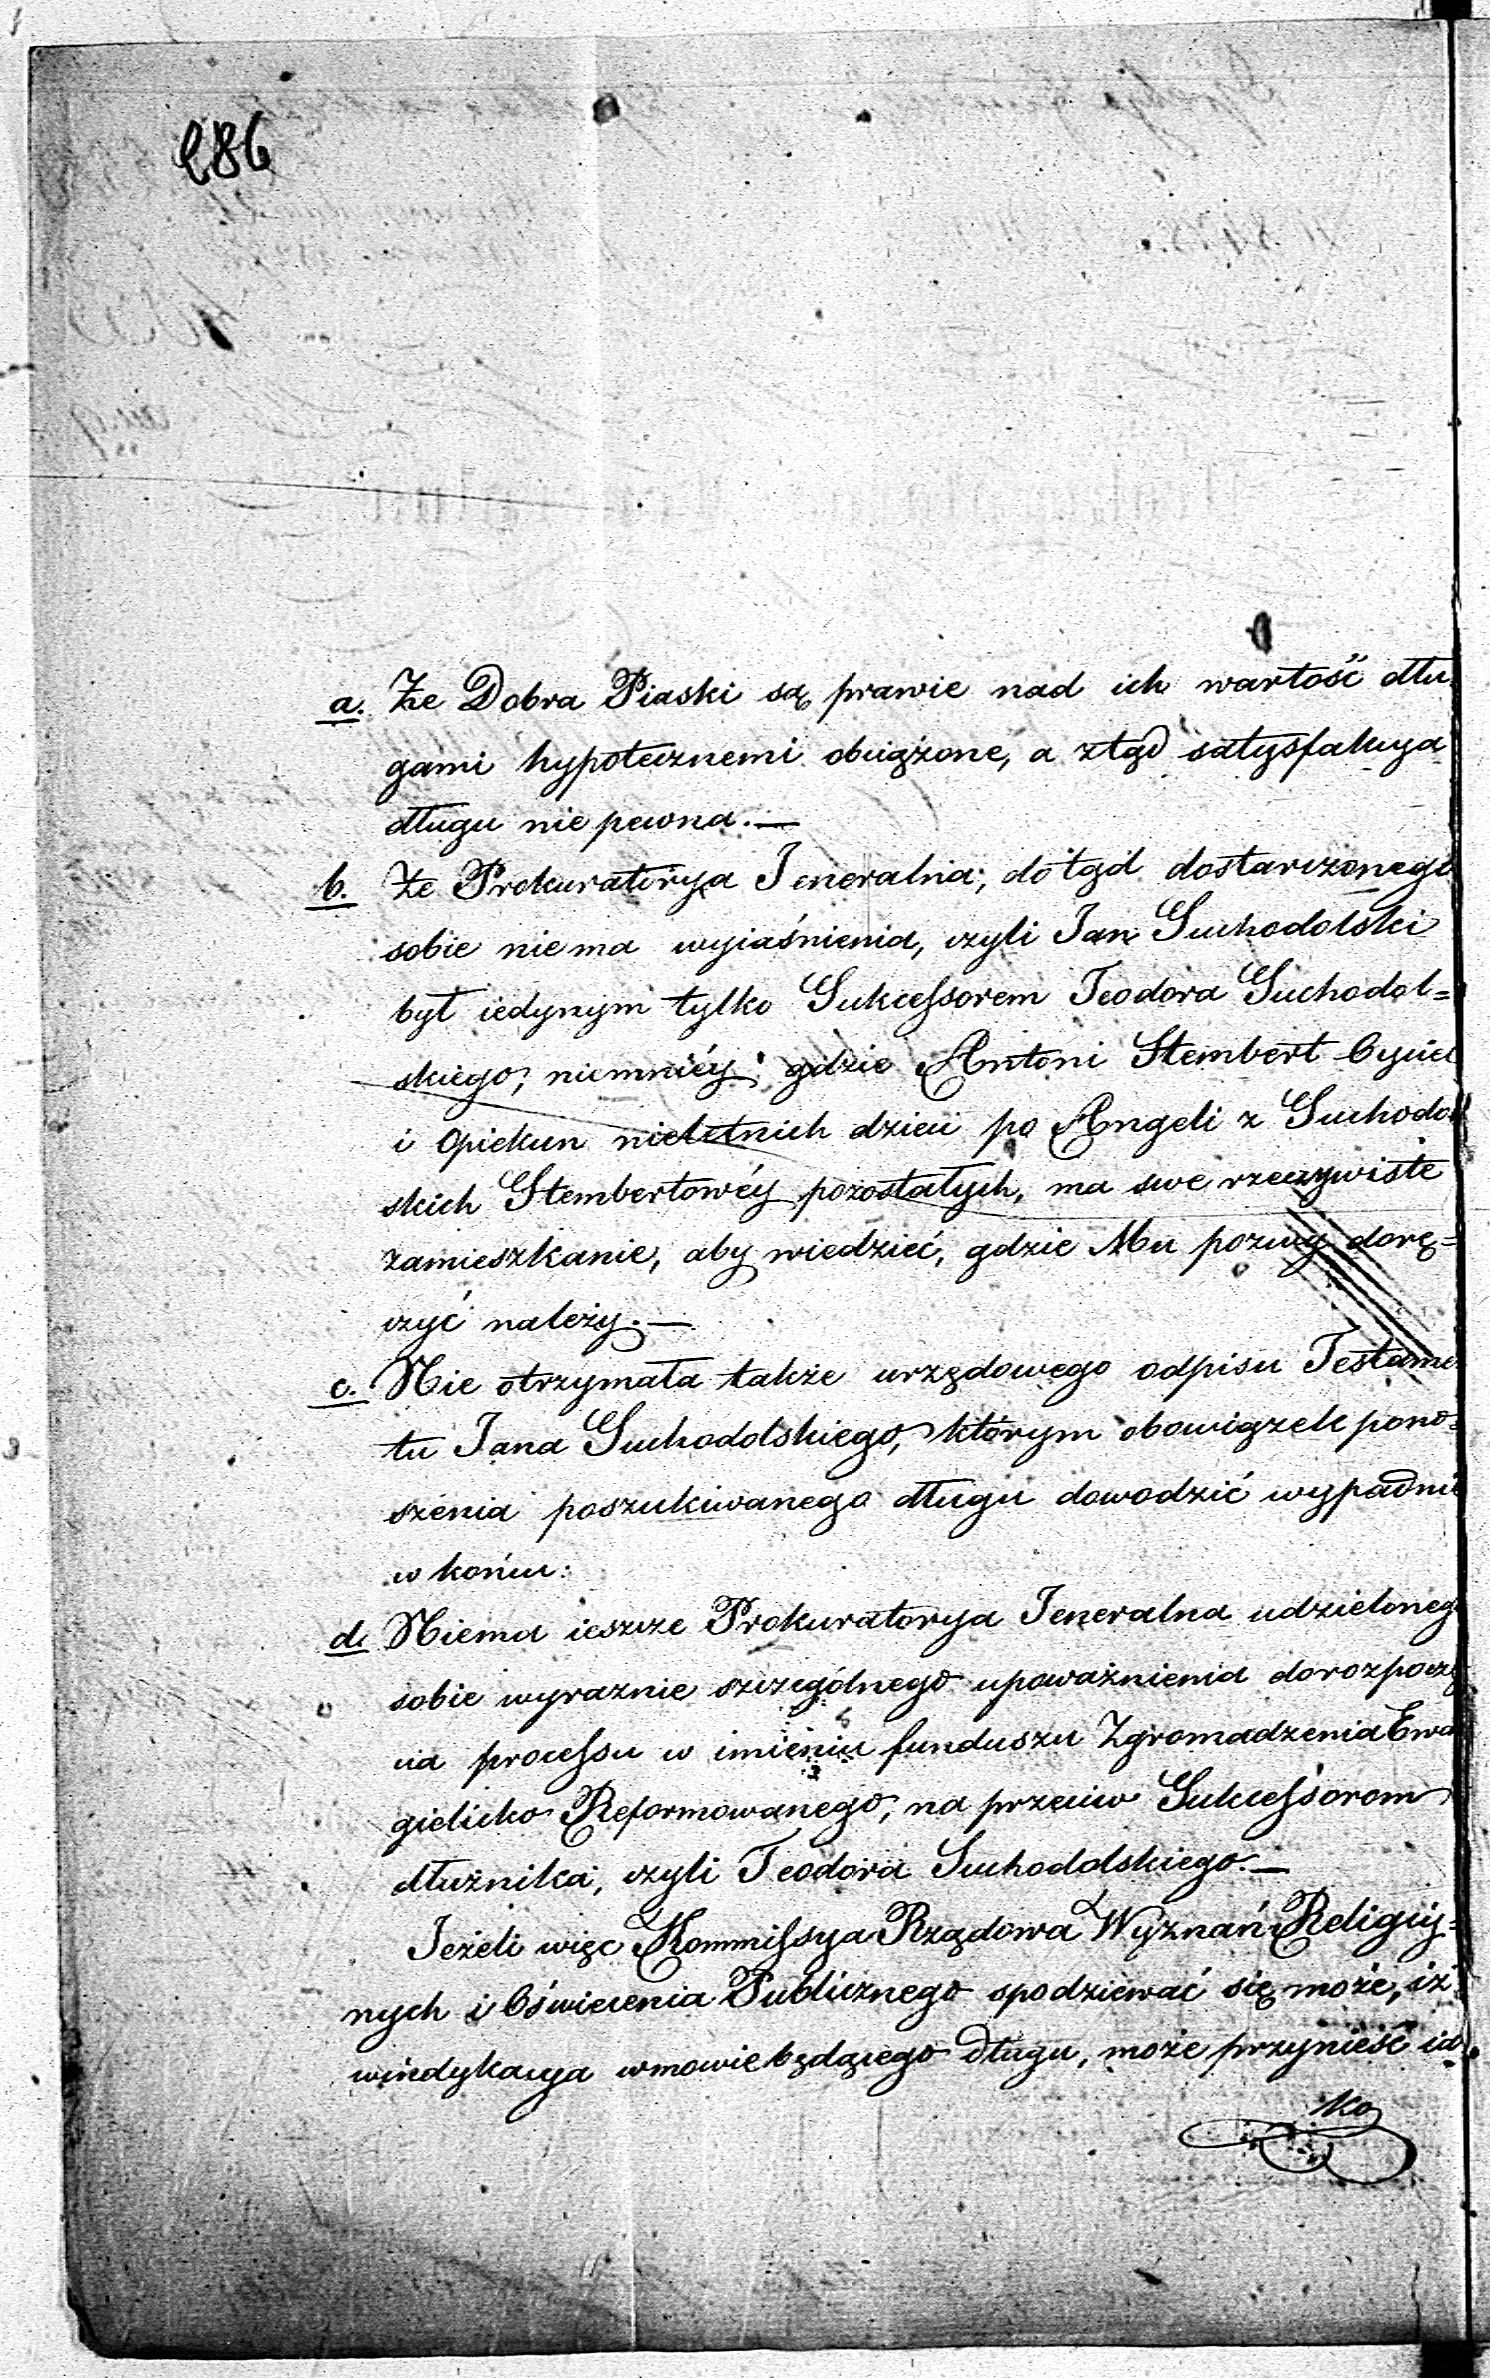 286
a. Że Dobra Piaski są prawie nad ich wartość dłu
gami hypotecznemi obciążone, a ztąd satysfakcya
długu nie pewna. —
b. Że Prokuratorya Jeneralna, do tąd dostarczonego
sobie nie ma wyiaśnienia, czyli Jan Suchodolski
był iedynym tylko Sukcessorem Teodora Suchodol=
skiego; niemniéy: gdzie Antoni Stembert Oyciec
i Opiekun nieletnich dzieci po Angeli z Suchodol
skich Stembertowéy pozostałych, ma swe rzeczywiste
zamieszkanie, aby wiedzieć, gdzie Mu pozwy dorę=
czyć należy. —
c. Nie otrzymała także urzędowego odpisu Testamen
tu Jana Suchodolskiego, którym obowiązek pono=
szenia poszukiwanego długu dowodzić wypadnie
w końcu:
d. Niema ieszcze Prokuratorya Jeneralna udzielonego
sobie wyraznie szczególnego upoważnienia do rozpoczę
cia processu w imieniu funduszu Zgromadzenia Ewa
gielicko Reformowanego, na przeciw Sukcessorom
dłużnika, czyli Teodora Suchodolskiego. —
Jeżeli więc Kommissya Rządowa Wyznań Religiy=
nych i Oświecenia Publicznego spodziewać się może, iż
windykacya w mowie będącego długu, może przynieść ia
ką